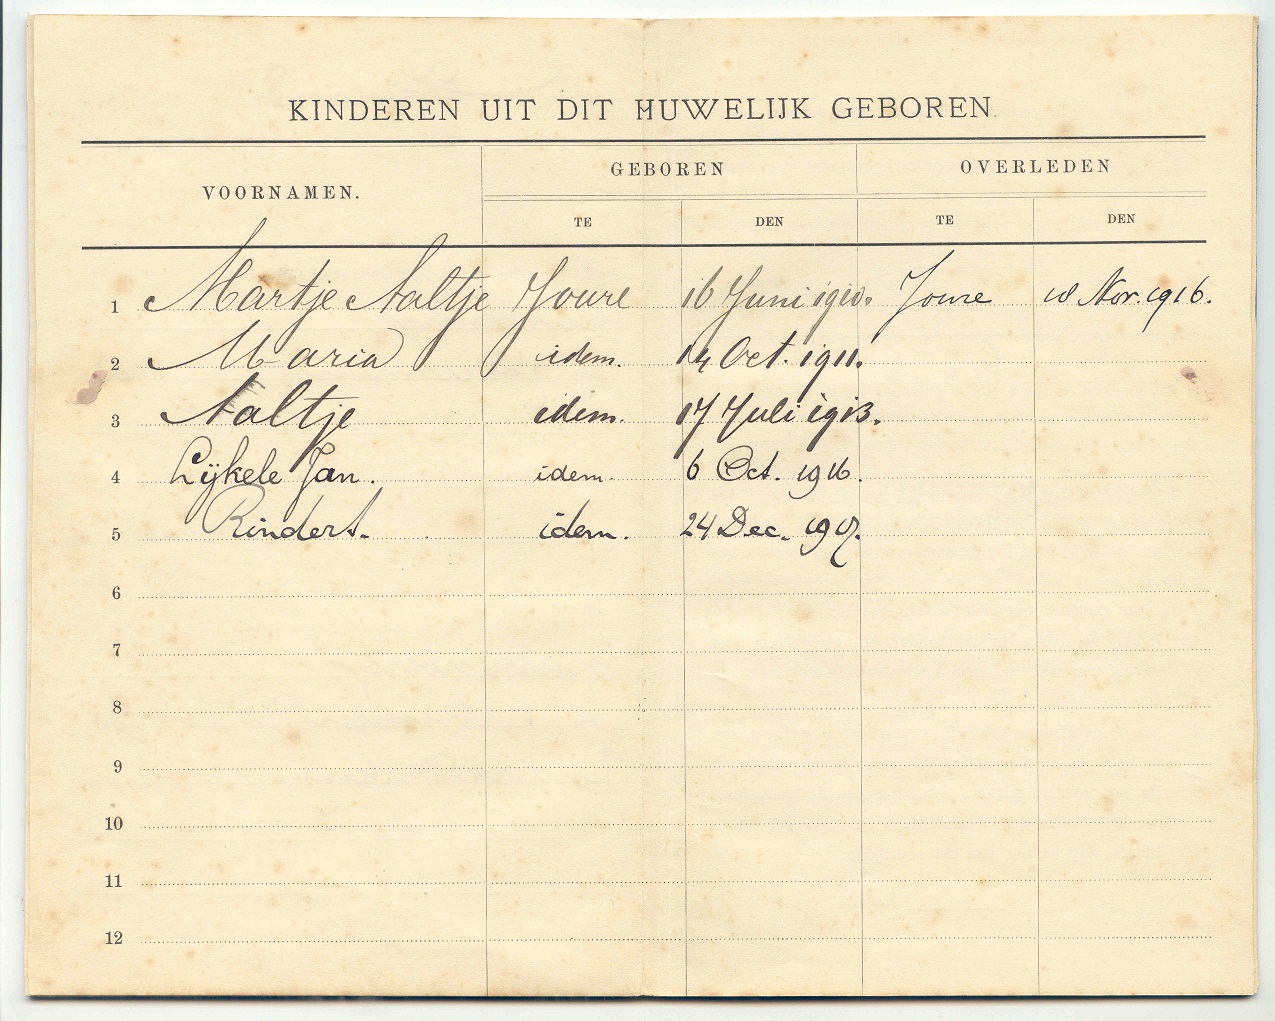 KINDEREN UIT DIT HUWELIJK GEBOREN.
VOORNAMEN. GEBOREN OVERLEDEN
TE DEN TE DEN
1 Martje Aaltje Joure 16 Juni 1910. Joure 10 Nov. 1916.
2 Maria idem. 14 Oct. 1911.
3 Aaltje idem. 17 Juli 1913.
4 Lijkele Jan. idem. 6 Oct. 1916.
5 Rinders. idem. 24 Dec. 1917.
6
7
8
9
10
11
12